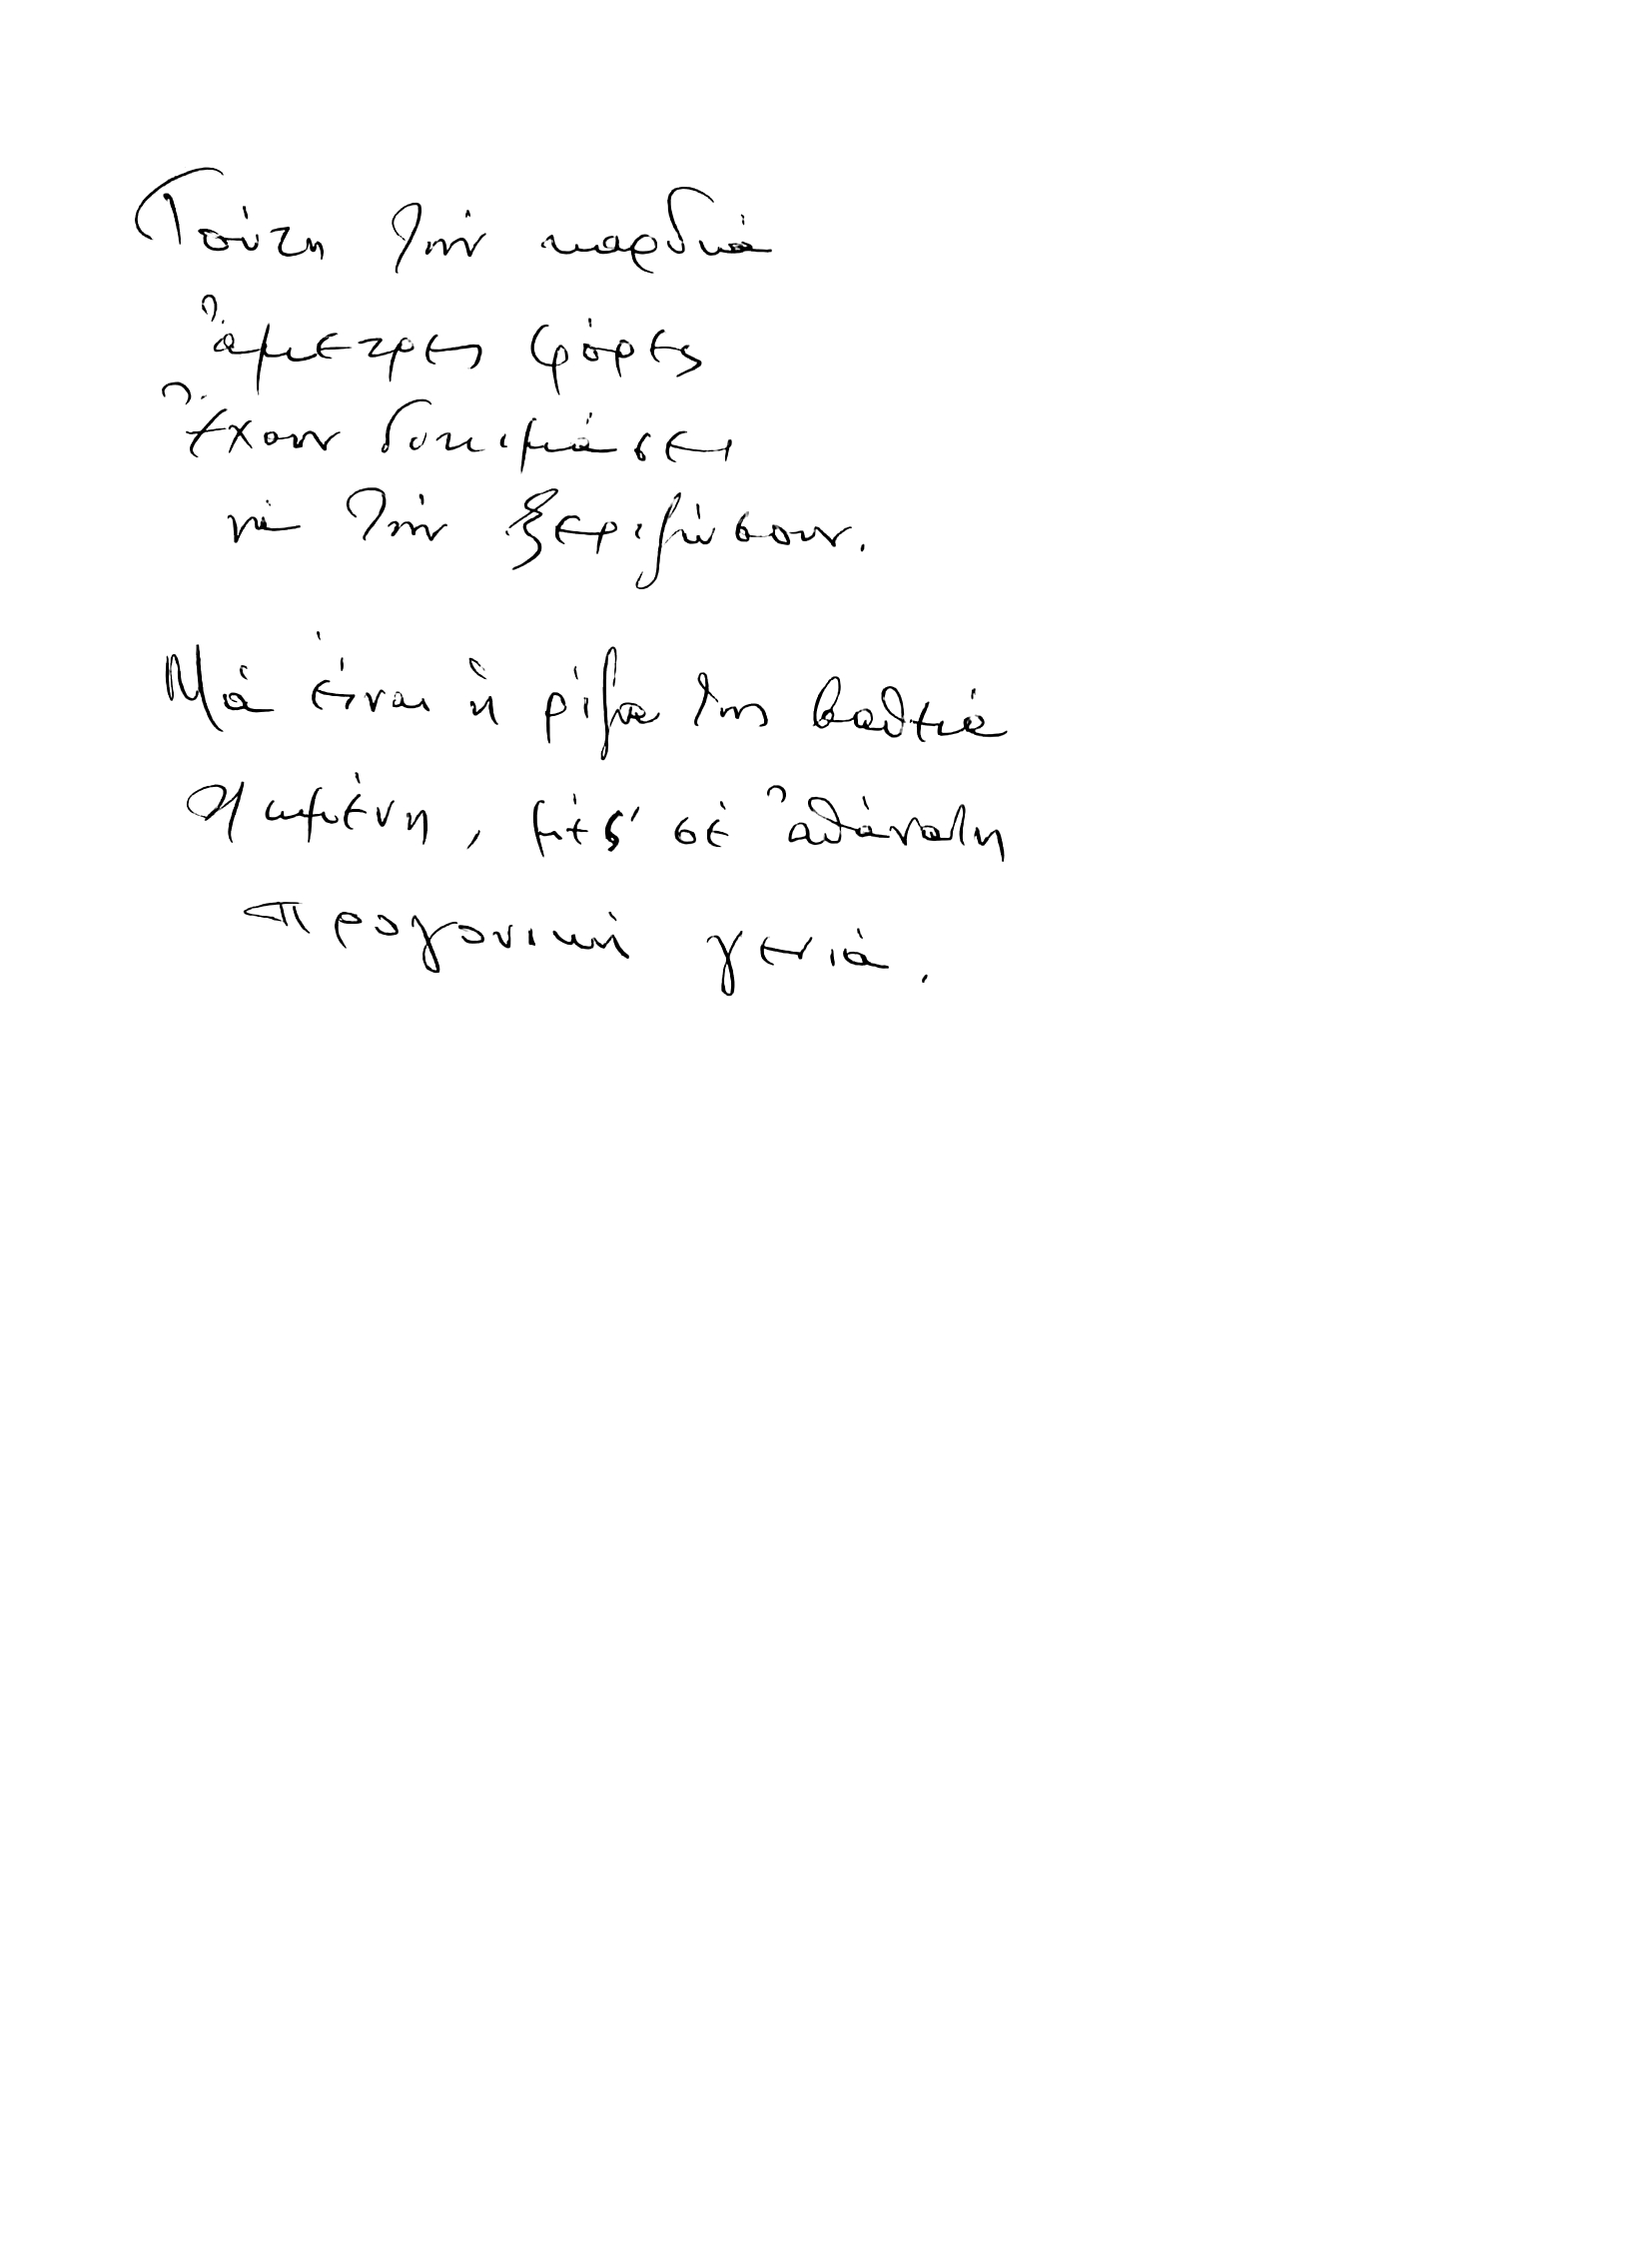 Τούτη τὴν καρδιὰ
ἄμετρες φόρες
Ἔχουν δοκιμάσει
νὰ τὴν ξεριζώσουν.
Μὰ εἶναι ἡ ρίζα της βαθειὰ
χωμένη, μὲς σὲ ἀθάνατη
προγονικὴ γενιά.